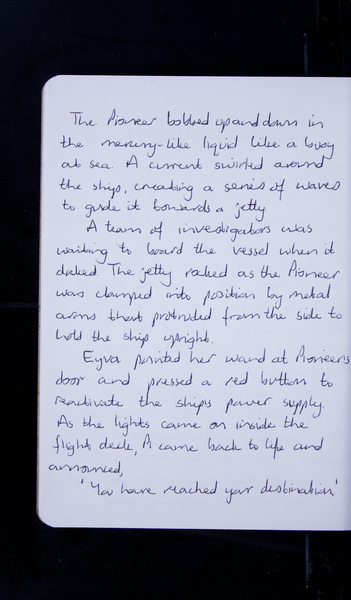 The Pioneer bobbed up and down in
the mercury-like liquid like a buoy
at sea. A current swirled around
the ships, creating a series of waves
to guide it towards a jetty.
A team of investigators was
waiting to board the vessel when it
docked. The jetty rocked as the Pioneer
was clamped into position by metal
arms that protruded from the side to
hold the ship upright.
Eyva pointed her wand at Pioneer's
door and pressed a red button to
reactivate the ships power supply.
As the lights came on inside the
flight deck, Pi came back to life and
announced,
'You have reached your destination.'